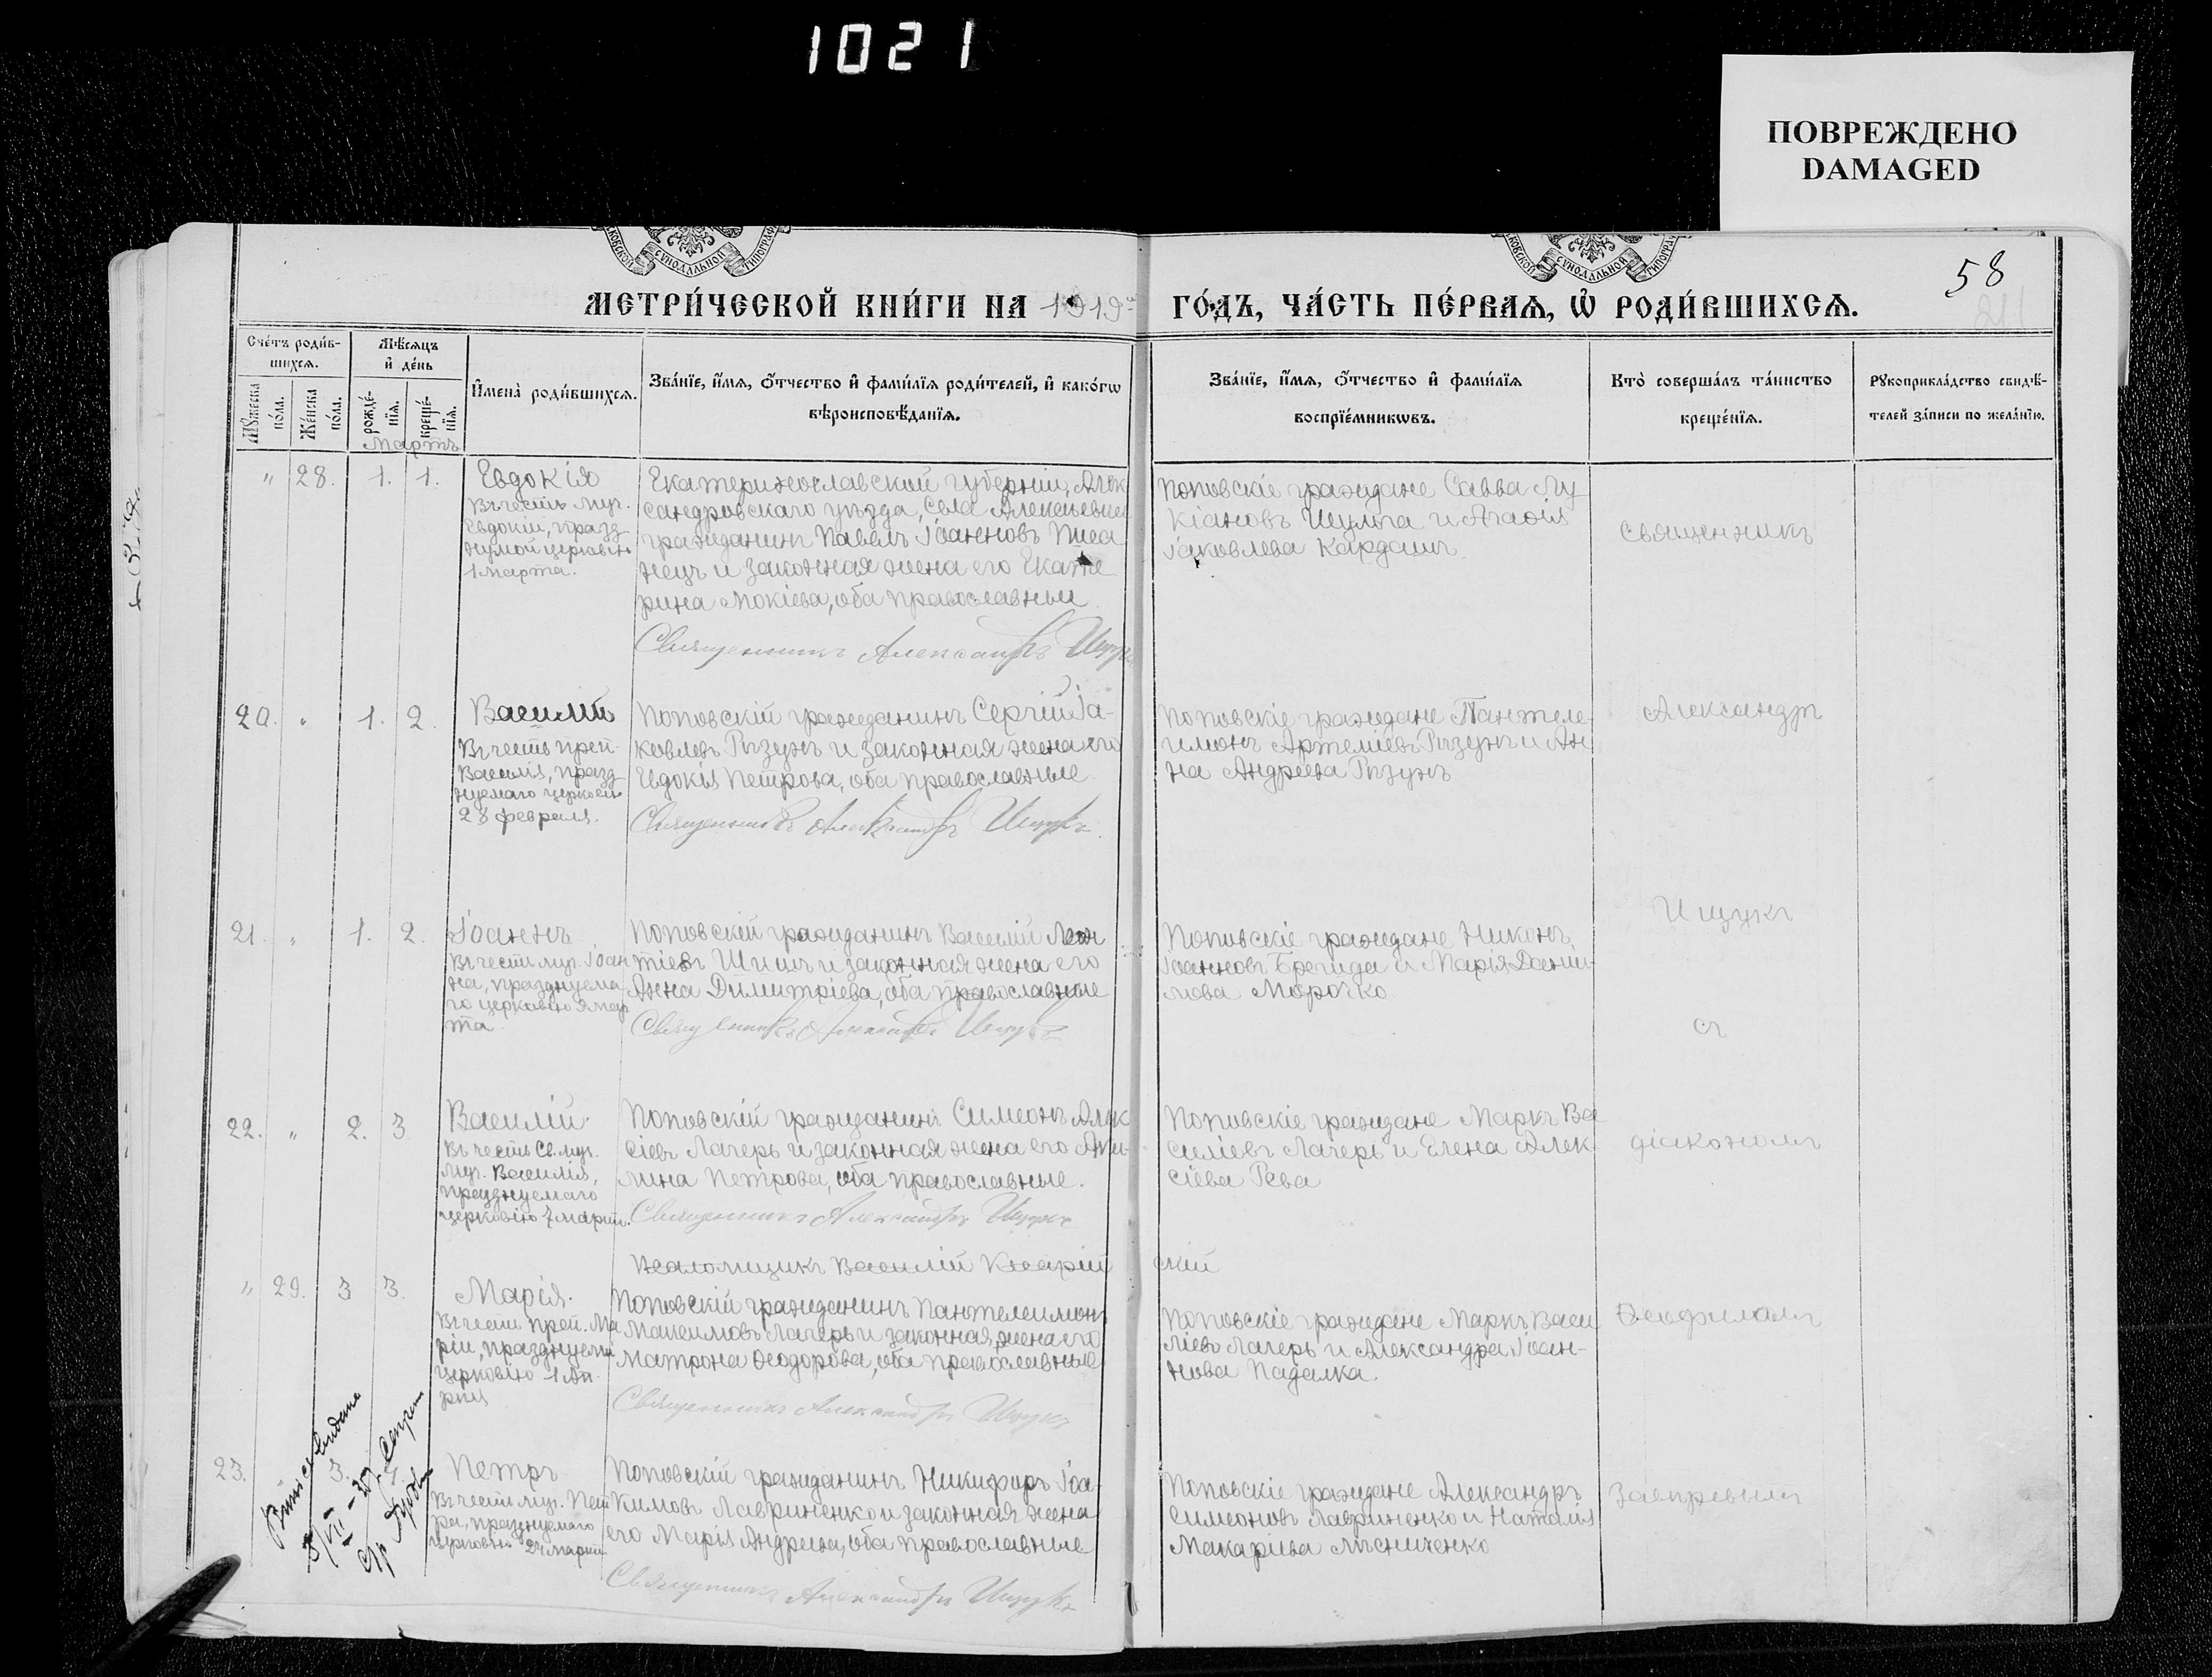 1021
ПОВРЕЖДЕНО
DAMAGED
58
МЕТРИ́ЧЕСКОЙ КНИ́ГИ НА 1919 ГО́ДЪ, ЧА́СТЬ ПЕ́РВАѦ, Ѡ҆ РОДИ́ВШИХСѦ.
Сче́тъ роди́в-
шихсѧ.
Мꙋ́жеска по́ла.
Же́нска по́ла.
Мѣ́сяцъ
и҆ де́нь
рожде́-
нїѧ.
креще́-
нїѧ.
И҆мена̀ роди́вшихсѧ.
Зва́нїе, и҆́мѧ, ѻ҆́тчество и҆ фами́лїѧ роди́телей, и҆ како́гѡ
вѣроисповѣ́данїѧ.
Зва́нїе, и҆́мѧ, ѻ҆́тчество и҆ фами́лїѧ
воспрїе́мникѡвъ.
Кто̀ соверша́лъ та́инство
креще́нїѧ.
Рꙋкоприкла́дство свидѣ́-
телей за́писи по жела́нїю.
Мартъ
" 28. 1. 1.
Евдокія
Въ честь муч.
Евдокіи, празд-
нуемой церковію
1 марта.
Екатеринославской губерніи, Алек
сандровскаго уѣзда, села
гражданинъ Павелъ Іоанновъ
и законная жена его Екате
рина Мокіева, оба православныи
Священникъ Александръ Ищукъ
Поповскіе граждане Савва Лу
кіановъ Шульга и Агафія
Іаковлева Кардашъ
Священникъ
20. " 1. 2.
Василій
Въ честь преп.
Василія, празд-
нуемаго церковію
28 февраля.
Поповскій гражданинъ Сергій Іа-
ковлевъ Рѣзунъ и законная жена его
Евдокія Петрова, оба православные
Священникъ Александръ Ищукъ
Поповскіе граждане Пантеле-
имонъ Артеміевъ Рѣзунъ и Ан
на Андреева Рѣзунъ
Александръ
21. " 1. 2.
Іоаннъ
Въ честь муч. Іоан
на, празднуема
го церковію мар
та
Поповскій гражданинъ Василій Леон
тіевъ Шишъ и законная жена его
Анна Димитріева, оба православные
Священникъ Александръ Ищукъ
Поповскіе граждане Никонъ
Іоанновъ и Марія Дании-
лова Морочко
Ищукъ
съ
22. " 2. 3.
Василій
Въ честь Св. муч.
муч. Василія,
празднуемаго
церковію 7 марта.
Поповскій гражданинъ Симеонъ Алек
сіевъ Лагерь и законная жена его Аки-
лина Петрова, оба православные.
Священникъ Александръ Ищукъ
Поповскіе граждане Маркъ Ва
силіевъ Лагерь и Елена Алек
сіева Рева
діакономъ
Псаломщикъ Василій
скій
" 29. 3 3.
Марія.
Въ честь преп. Ма
ріи, празднуемой
церковію 1 Ап
рѣля
Поповскій гражданинъ Пантелеимонъ
Максимовъ Лагерь и законная жена его
Матрона Ѳеодорова, оба православные
Священникъ Александръ Ищукъ
Поповскіе граждане Маркъ Васи
ліевъ Лагерь и Александра Іоан-
нова Падалка.
Ѳеофиломъ
23. " 3.
Петръ
Въ честь муч. Пет
ра, празднуемаго
церковію 24 марта
Поповскій гражданинъ Никифоръ Іоа
кимовъ Лавриненко и законная жена
его Марія Андреева, оба православные
Священникъ Александръ Ищукъ
Поповскіе граждане Александръ
Симеоновъ Лавриненко и Наталія
Макаріева Лѣсниченко